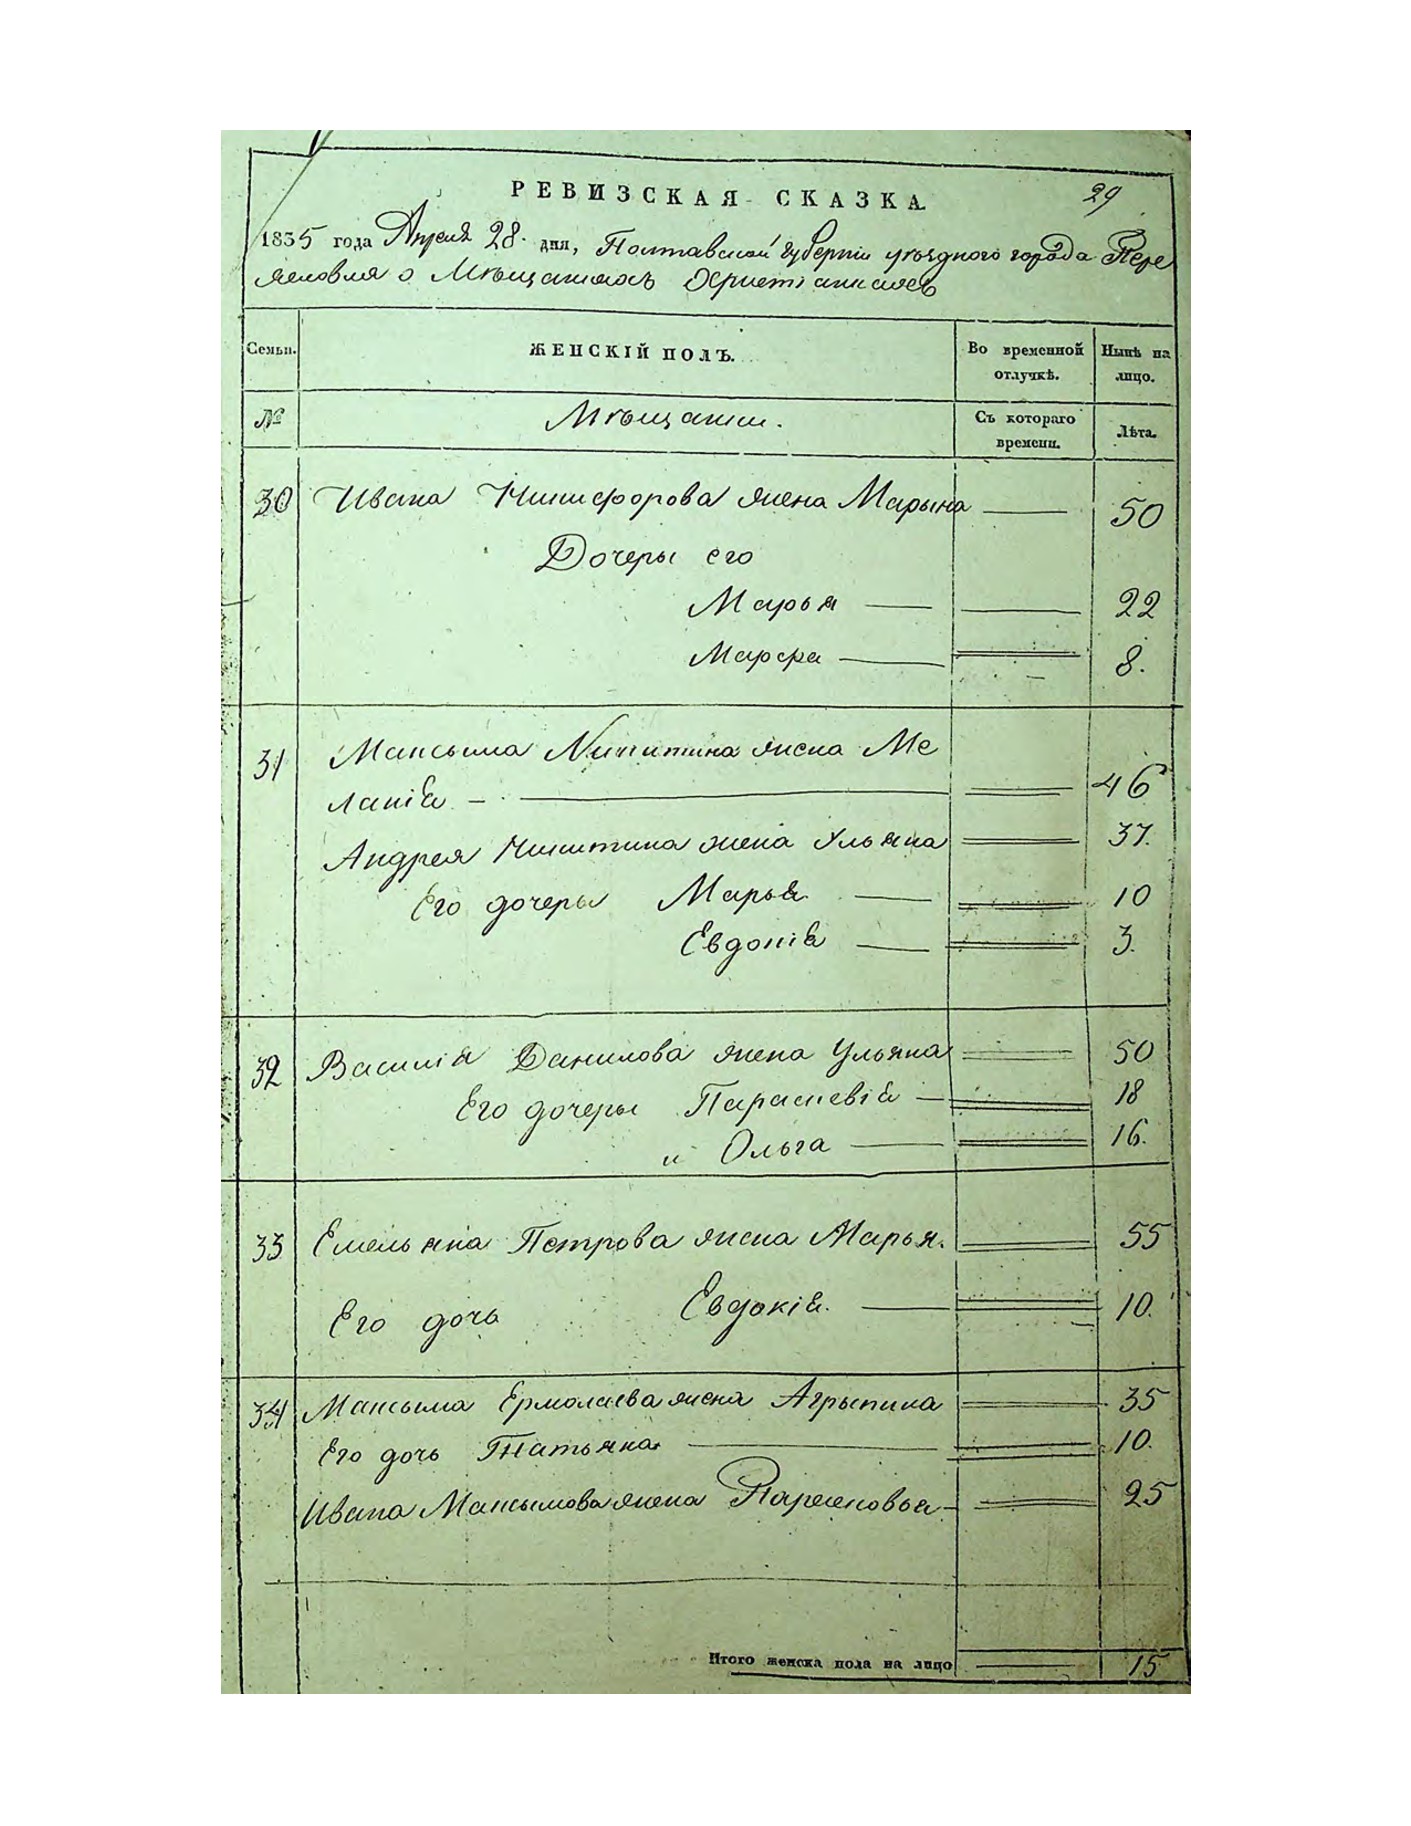 РЕВИЗСКАЯ СКАЗКА
29
1835 года Апреля 28 дня, Полтавской губерніи уѣзднаго города Пере
яславля о Мѣщанахъ Христіанахъ
Семьи. ЖЕНСКІЙ ПОЛЪ. Во временной отлучкѣ. Нынѣ на лицо.
№ Мѣщанин. Съ котораго времени. Лѣта.
30 Ивана Никифорова жена Марына — 50
Дочеры его
Марья — 22
Марфа — 8.
31 Максыма Никитина жена Ме
ланія — 46
Андрея Никитина жена Ульяна 37.
Его дочеры Марья — 10
Евдокія — 3.
32 Василія Данилова жена Ульяна 50
Его дочеры Параскевія — 18
и Ольга — 16.
33 Емельяна Петрова жена Марья. 55
Его дочь Евдокія. — 10.
34 Максыма Ермолаева жена Агрыпина 35
Его дочь Татьяна — 10.
Ивана Максымова жена Парасковья — 25
Итого женска пола на лицо — 15